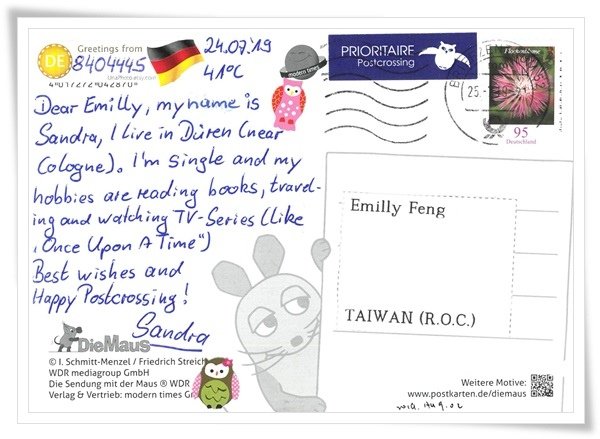 Greetings from
DE 8404445
24.07.19
41°C
modern times
PRIORITAIRE
Postcrossing
25.
95
Deutschland
Dear Emilly, my name is
Sandra, I live in Düren (near
Cologne). I'm single and my
hobbies are reading books, travel-
ing and watching TV-Series (like
„Once Upon A Time“)
Best wishes and
Happy Postcrossing!
Sandra
Emilly Feng
TAIWAN (R.O.C.)
DieMaus
© I. Schmitt-Menzel / Friedrich Streich
WDR mediagroup GmbH
Die Sendung mit der Maus ® WDR
Verlag & Vertrieb: modern times G
Weitere Motive:
www.postkarten.de/diemaus
2019. Aug. 02